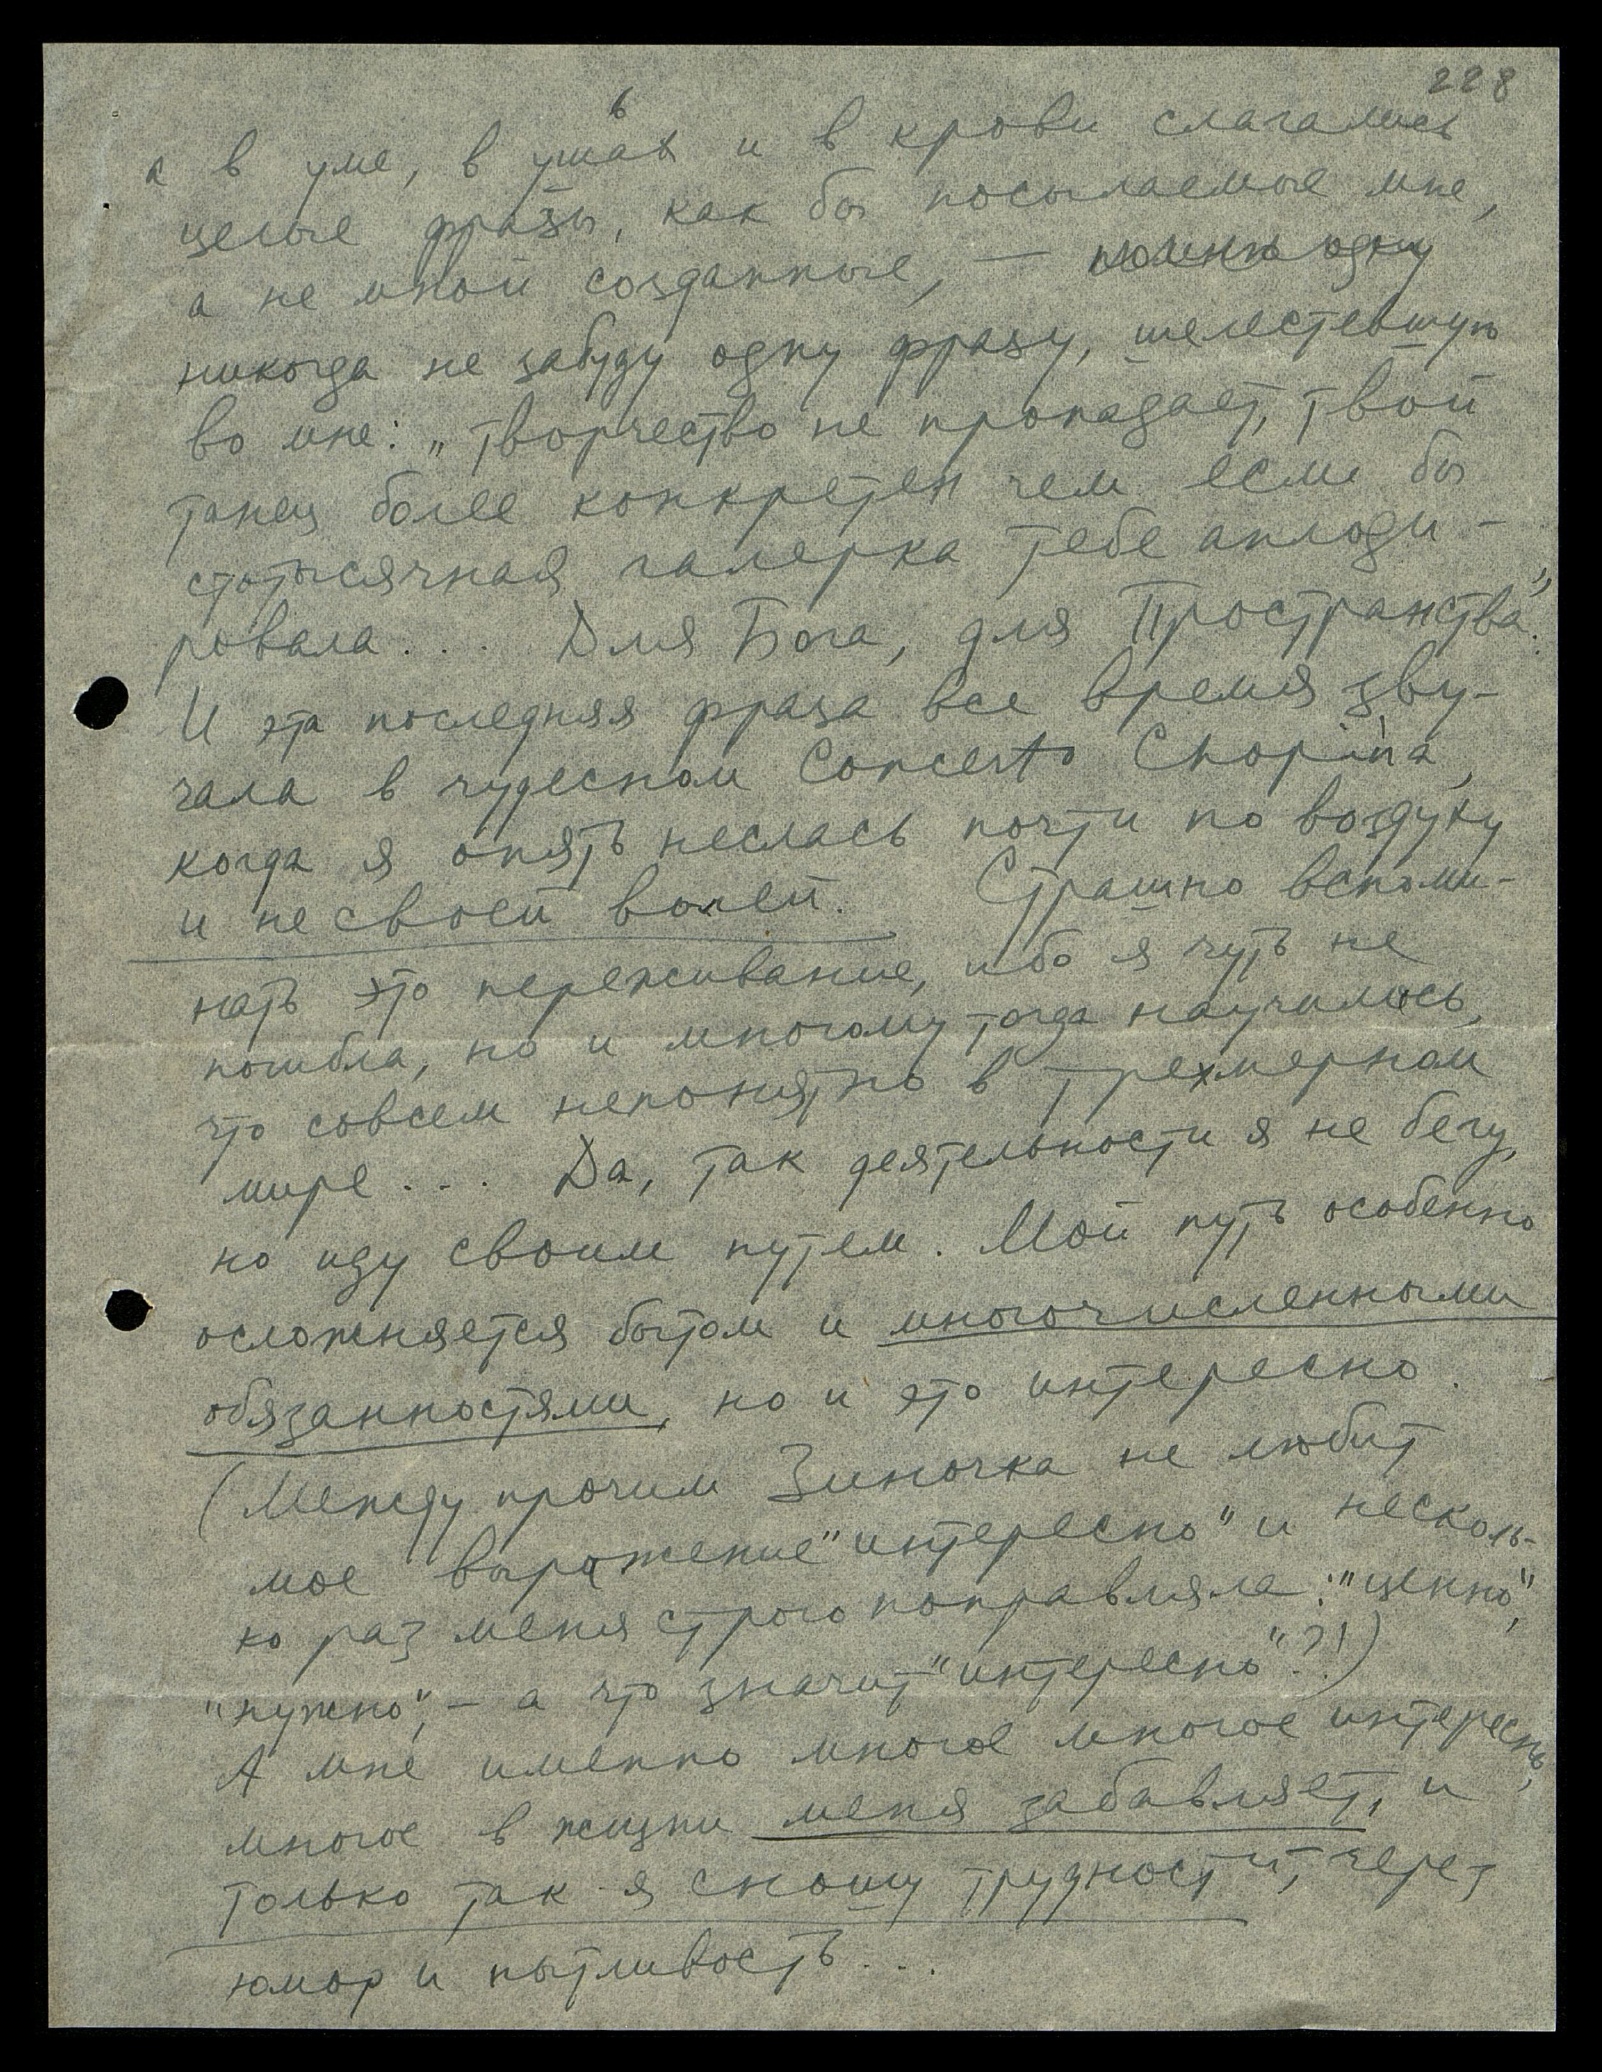 228
6
а в уме, в ушах и в крови слагались
целые фразы, как бы посылаемые мне,
а не мной созданные, —
никогда не забуду одну фразу, шелестевшую
во мне: „творчество не пропадает, твой
танец более конкретен чем если бы
стотысячная галерка тебе аплоди-
ровала... Для Бога, для Пространства".
И эта последняя фраза все время зву-
чала в чудесном Concerto Chopin'а,
когда я опять неслась почти по воздуху
и не своей волей. Страшно вспоми-
нать это переживание, ибо я чуть не
погибла, но и многому тогда научилась,
что совсем непонятно в трехмерном
мире... Да, так деятельности я не бегу,
но иду своим путем. Мой путь особенно
осложняется бытом и многочисленными
обязанностями, но и это интересно.
(Между прочим Зиночка не любит
мое выражение "интересно" и несколь-
ко раз меня строго поправляла: "ценно",
"нужно", — а что значит "интересно"?!)
А мне именно многое многое интересно,
многое в жизни меня забавляет, и
только так я сношу трудности, через
юмор и пытливость...